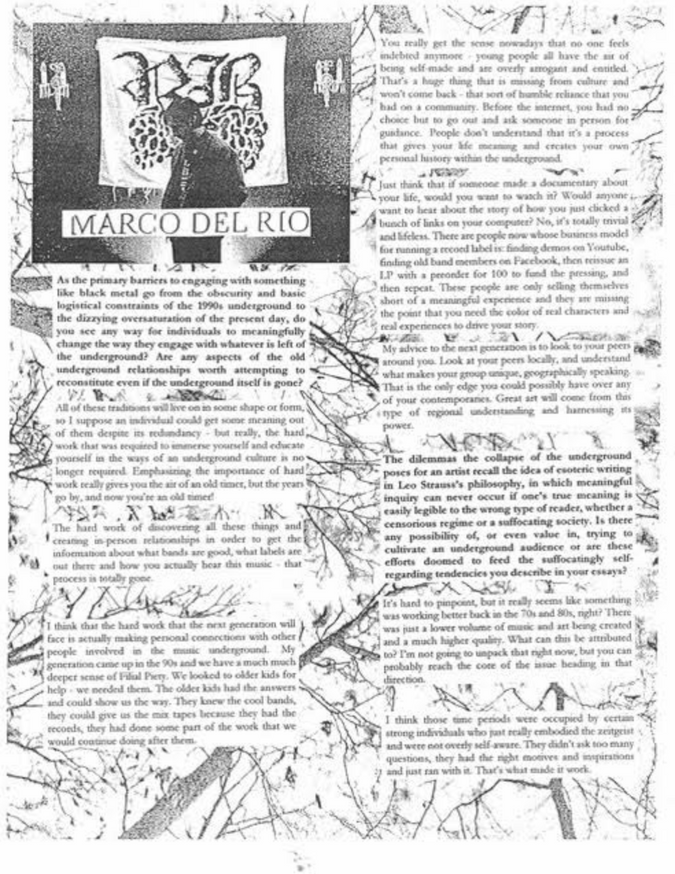 MARCO DEL RIO
As the primary barriers to engaging with something
like black metal go from the obscurity and basic
logistical constraints of the 1990s underground to
the dizzying oversaturation of the present day, do
you see any way for individuals to meaningfully
change the way they engage with whatever is left of
the underground? Are any aspects of the old
underground relationships worth attempting to
reconstitute even if the underground itself is gone?
All of these traditions will live on in some shape or form,
so I suppose an individual could get some meaning out
of them despite its redundancy - but really, the hard
work that was required to immerse yourself and educate
yourself in the ways of an underground culture is no
longer required. Emphasizing the importance of hard
work really gives you the air of an old timer, but the years
go by, and now you're an old timer!
The hard work of discovering all these things and
creating in-person relationships in order to get the
information about what bands are good, what labels are
out there and how you actually hear this music - that
process is totally gone.
I think that the hard work that the next generation will
face is actually making personal connections with other
people involved in the music underground. My
generation came up in the 90s and we have a much much
deeper sense of Filial Piety. We looked to older kids for
help - we needed them. The older kids had the answers
and could show us the way. They knew the cool bands,
they could give us the mix tapes because they had the
records, they had done some part of the work that we
would continue doing after them.
You really get the sense nowadays that no one feels
indebted anymore - young people all have the air of
being self-made and are overly arrogant and entitled.
That's a huge thing that is missing from culture and
won't come back - that sort of humble reliance that you
had on a community. Before the internet, you had no
choice but to go out and ask someone in person for
guidance. People don't understand that it's a process
that gives your life meaning and creates your own
personal history within the underground.
Just think that if someone made a documentary about
your life, would you want to watch it? Would anyone
want to hear about the story of how you just clicked a
bunch of links on your computer? No, it's totally trivial
and lifeless. There are people now whose business model
for running a record label is: finding demos on Youtube,
finding old band members on Facebook, then reissue an
LP with a preorder for 100 to fund the pressing, and
then repeat. These people are only selling themselves
short of a meaningful experience and they are missing
the point that you need the color of real characters and
real experiences to drive your story.
My advice to the next generation is to look to your peers
around you. Look at your peers locally, and understand
what makes your group unique, geographically speaking.
That is the only edge you could possibly have over any
of your contemporaries. Great art will come from this
type of regional understanding and harnessing its
power.
The dilemmas the collapse of the underground
poses for an artist recall the idea of esoteric writing
in Leo Strauss's philosophy, in which meaningful
inquiry can never occur if one's true meaning is
easily legible to the wrong type of reader, whether a
censorious regime or a suffocating society. Is there
any possibility of, or even value in, trying to
cultivate an underground audience or are these
efforts doomed to feed the suffocatingly self-
regarding tendencies you describe in your essays?
It's hard to pinpoint, but it really seems like something
was working better back in the 70s and 80s, right? There
was just a lower volume of music and art being created
and a much higher quality. What can this be attributed
to? I'm not going to unpack that right now, but you can
probably reach the core of the issue heading in that
direction.
I think those time periods were occupied by certain
strong individuals who just really embodied the zeitgeist
and were not overly self-aware. They didn't ask too many
questions, they had the right motives and inspirations
and just ran with it. That's what made it work.